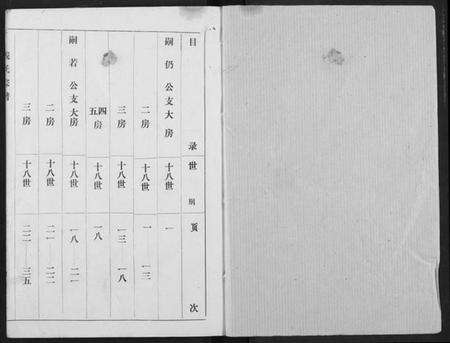 目录 世 页次
嗣仍公支大房 十八世 一
二房 十八世 一 一三
三房 十八世 一三 一八
四五房 十八世 一八
嗣若公支大房 十八世 一八 二一
二房 十八世 二一 二二
三房 十八世 二二 三五